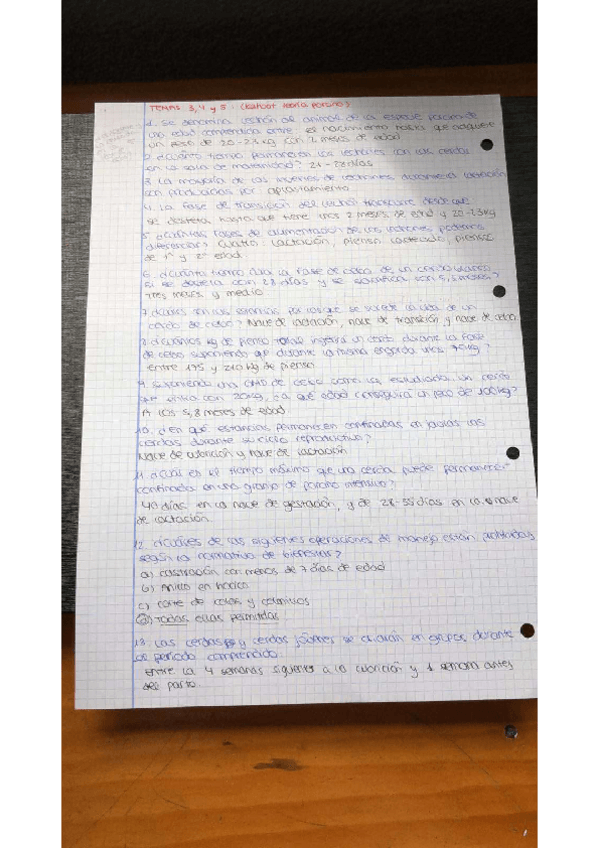 TEMAS 3, 4 y 5. (Kahoot teoría porcino)
1. Se denomina lechón al animal de la especie porcina de
una edad comprendida entre: el nacimiento hasta que adquiere
un peso de 20-25 kg con 2 meses de edad
2. ¿Cuánto tiempo permanecen los lechones con las cerdas
en la sala de maternidad? 21-28 días
3. La mayoría de las muertes de lechones durante la lactación
son producidas por: aplastamiento
4. La fase de transición del lechón transcurre desde que
se desteta hasta que tiene unos 2 meses de edad y 20-25kg
5. ¿Cuántas fases de alimentación de los lechones podemos
diferenciar? Cuatro: lactación, pienso lacteado, piensos
de 1ª y 2ª edad.
6. ¿Cuánto tiempo dura la fase de cebo de un cerdo blanco
si se desteta con 28 días y se sacrifica con 5,5 meses?
Tres meses y medio
7. ¿Cuáles son las estancias por las que se sucede la vida de un
cerdo de cebo? Nave de lactación, nave de transición y nave de cebo.
8. ¿Cuántos kg de pienso total ingerirá un cerdo durante la fase
de cebo suponiendo que durante la misma engorda unos 75kg?
entre 195 y 210 kg de pienso
9. Suponiendo una GMD de cebo como la estudiada, un cerdo
que entra con 20kg, ¿a qué edad conseguirá un peso de 100kg?
A los 5,8 meses de edad.
10. ¿En qué estancias permanecen confinadas en jaulas las
cerdas durante su ciclo reproductivo?
Nave de cubrición y nave de lactación
11. ¿Cuál es el tiempo máximo que una cerda puede permanecer
confinada en una granja de porcino intensivo?
40 días en la nave de gestación, y de 28-35 días en la nave
de lactación.
12. ¿Cuáles de las siguientes operaciones de manejo están
según la normativa de bienestar?
a) castración con menos de 7 días de edad
b) Anillo en hocico
c) corte de colas y colmillos
d) Todas ellas permitidas
13. Las cerdas y cerdas jóvenes se criarán en grupos durante
el periodo comprendido
entre la 4 semanas siguientes a la cubrición y 1 semana antes
del parto.